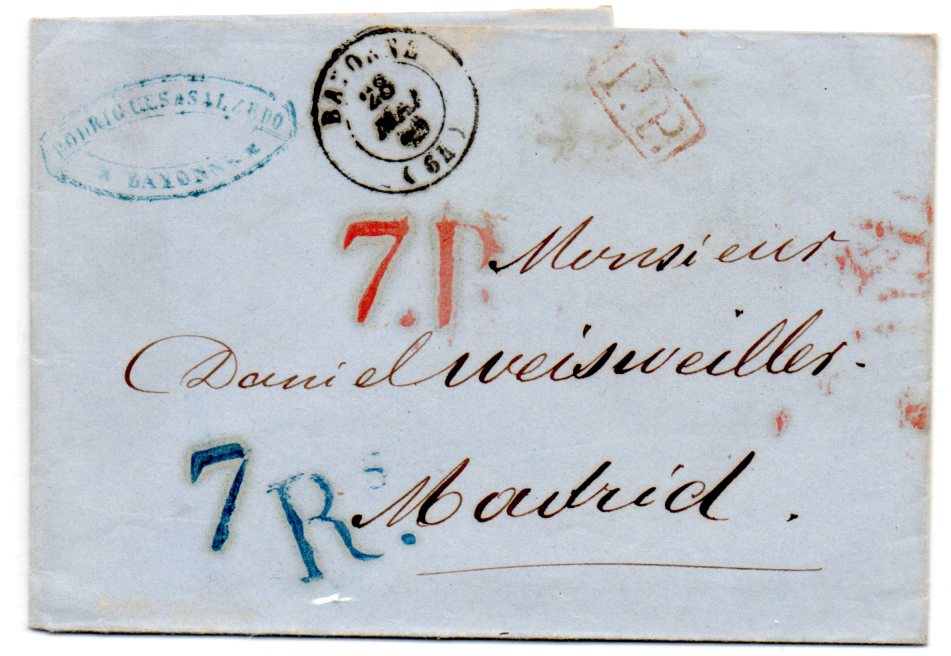 RODRIGUES & SALZEDO
BAYONNE
BAYONNE
28
MAI
(64)
P.P.
7.P.
Monsieur
Daniel Weisweiller.
7 Rs.
Madrid.